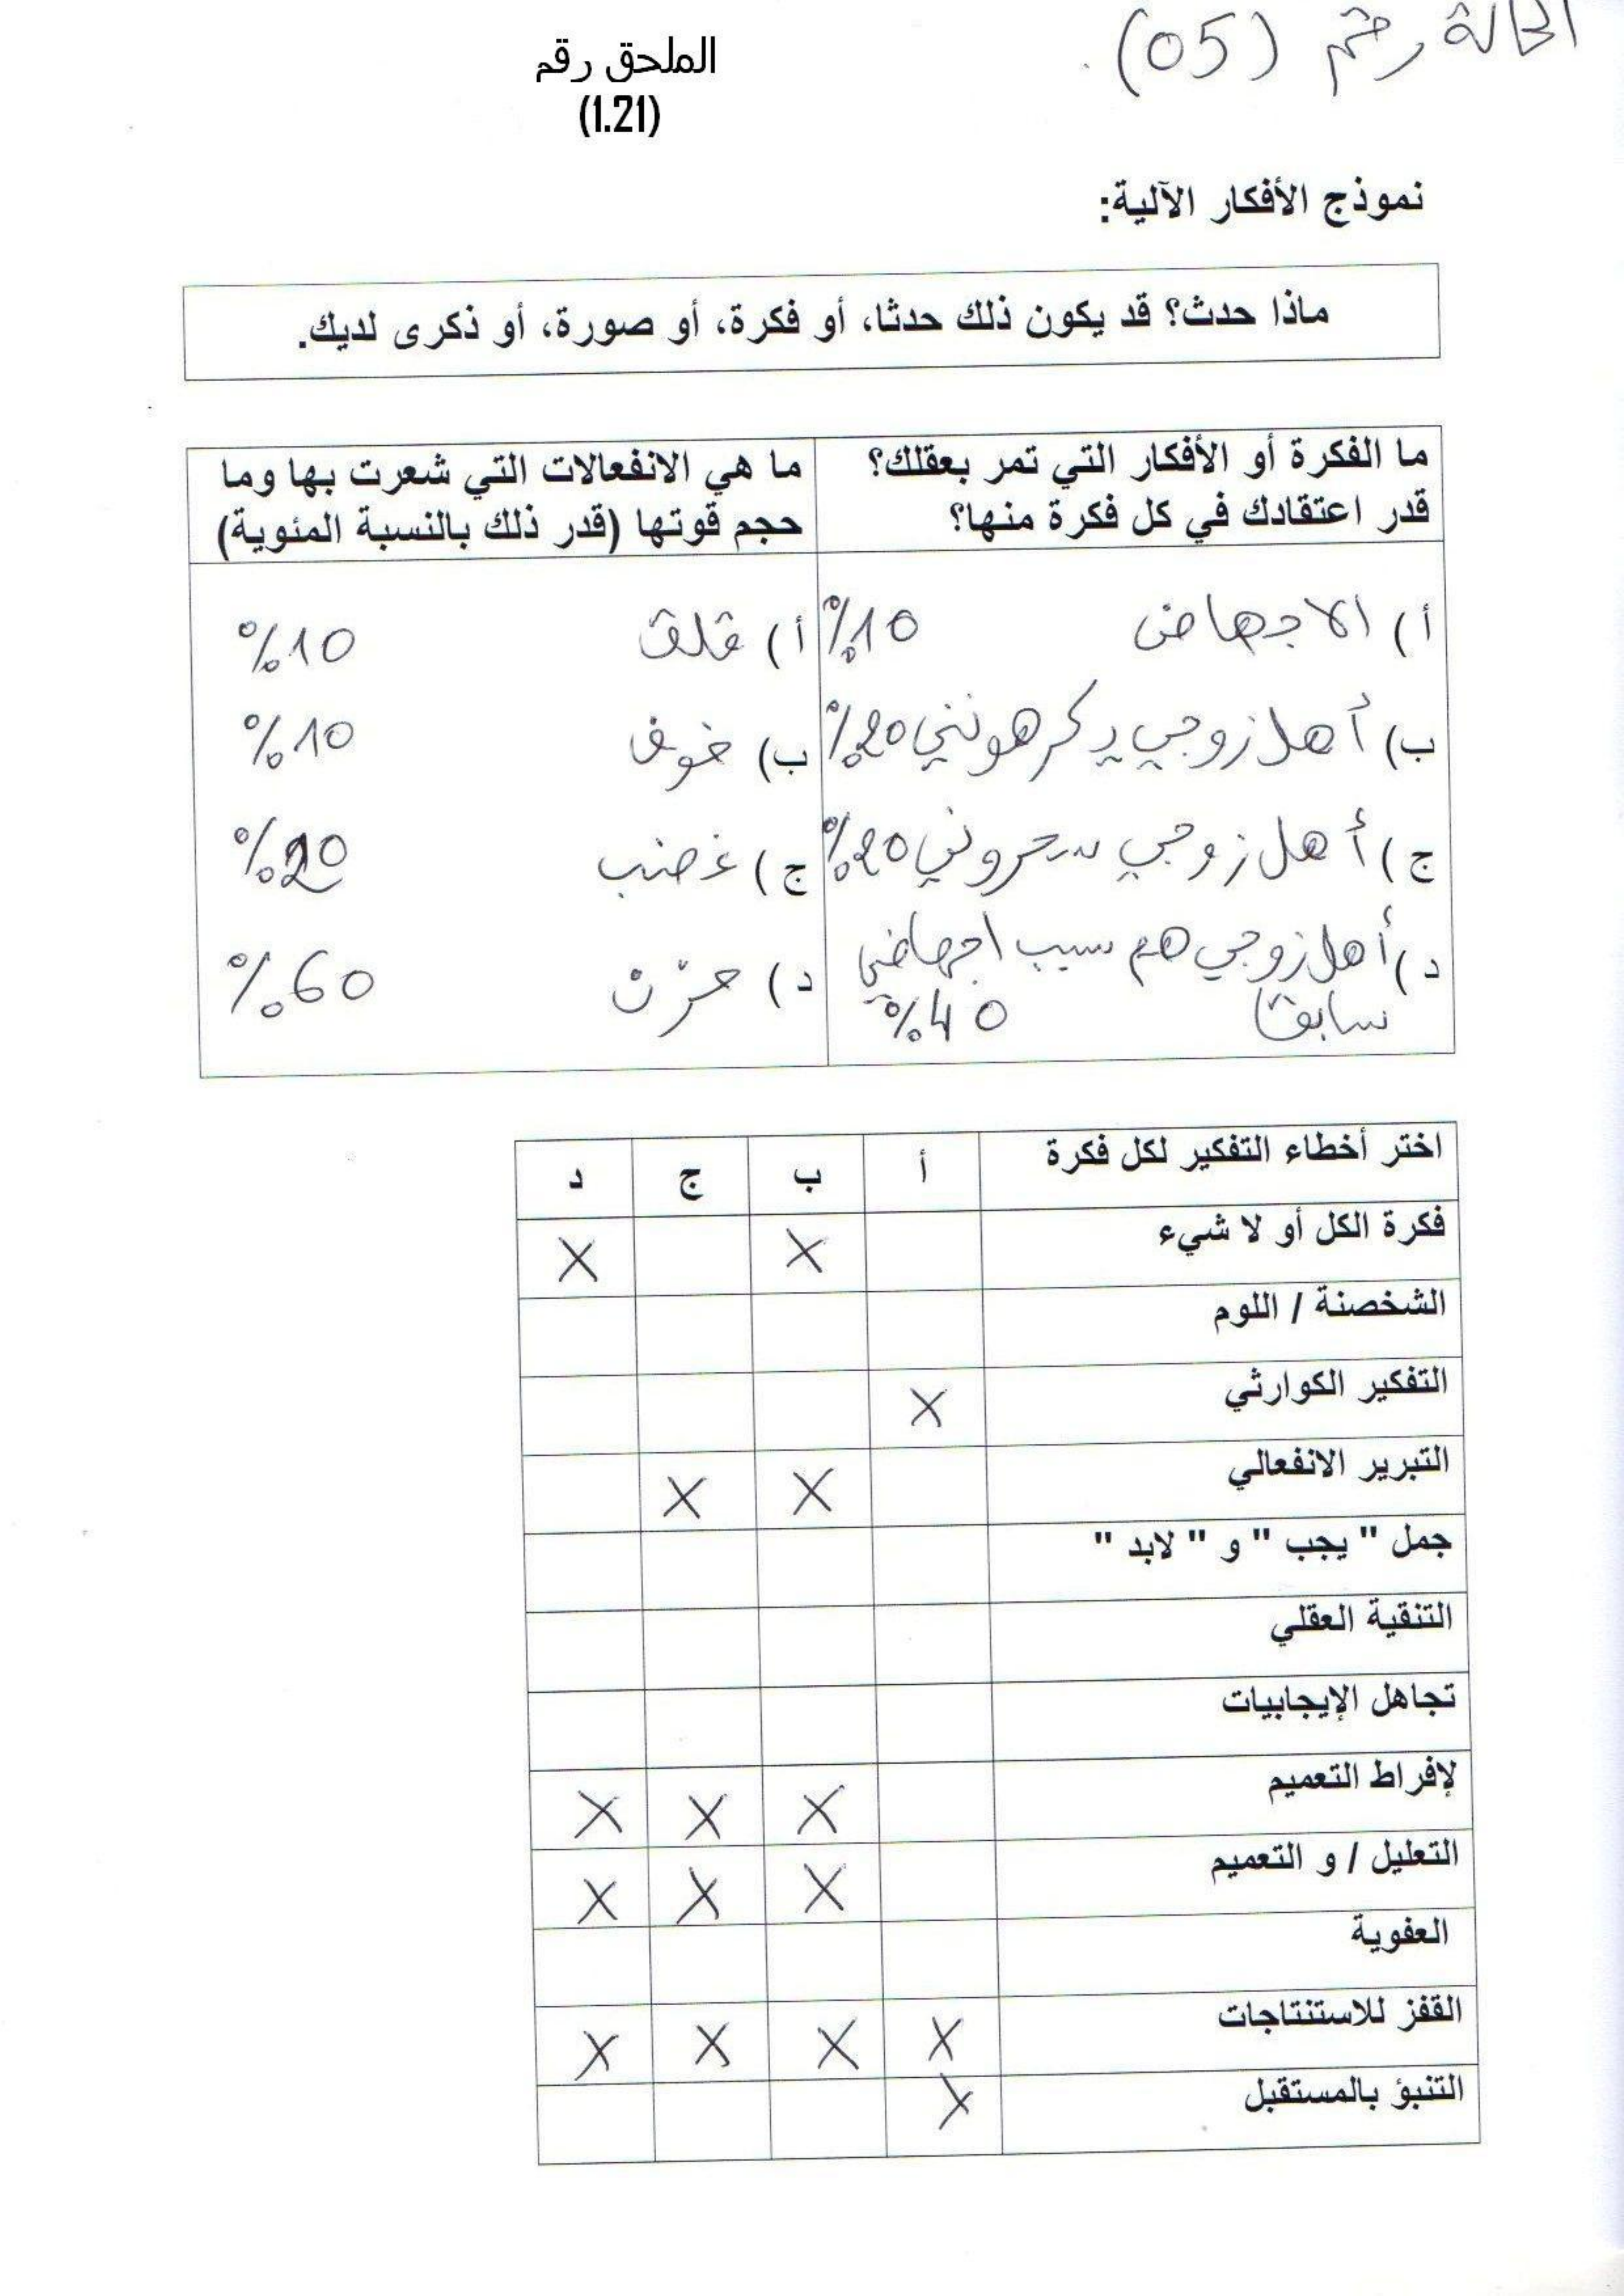 الحالة رقم (05).
الملحق رقم
(1.21)
نموذج الأفكار الآلية:
ماذا حدث؟ قد يكون ذلك حدثا، أو فكرة، أو صورة، أو ذكرى لديك.
ما الفكرة أو الأفكار التي تمر بعقلك؟
قدر اعتقادك في كل فكرة منها؟
ما هي الانفعالات التي شعرت بها وما
حجم قوتها (قدر ذلك بالنسبة المئوية)
أ) الاجهاض 10%
أ) قلق 10%
ب) أهل زوجي يكرهونني 20%
ب) خوف 10%
ج) أهل زوجي سحروني 20%
ج) غضب 20%
د) أهل زوجي هم سبب اجهاضي
سابقا 40%
د) حزن 60%
اختر أخطاء التفكير لكل فكرة أ ب ج د
فكرة الكل أو لا شيء X X
الشخصنة / اللوم
التفكير الكوارثي X
التبرير الانفعالي X X
جمل " يجب " و " لابد "
التنقية العقلي
تجاهل الإيجابيات
لإفراط التعميم X X X
التعليل / و التعميم X X X
العفوية
القفز للاستنتاجات X X X X
التنبؤ بالمستقبل X